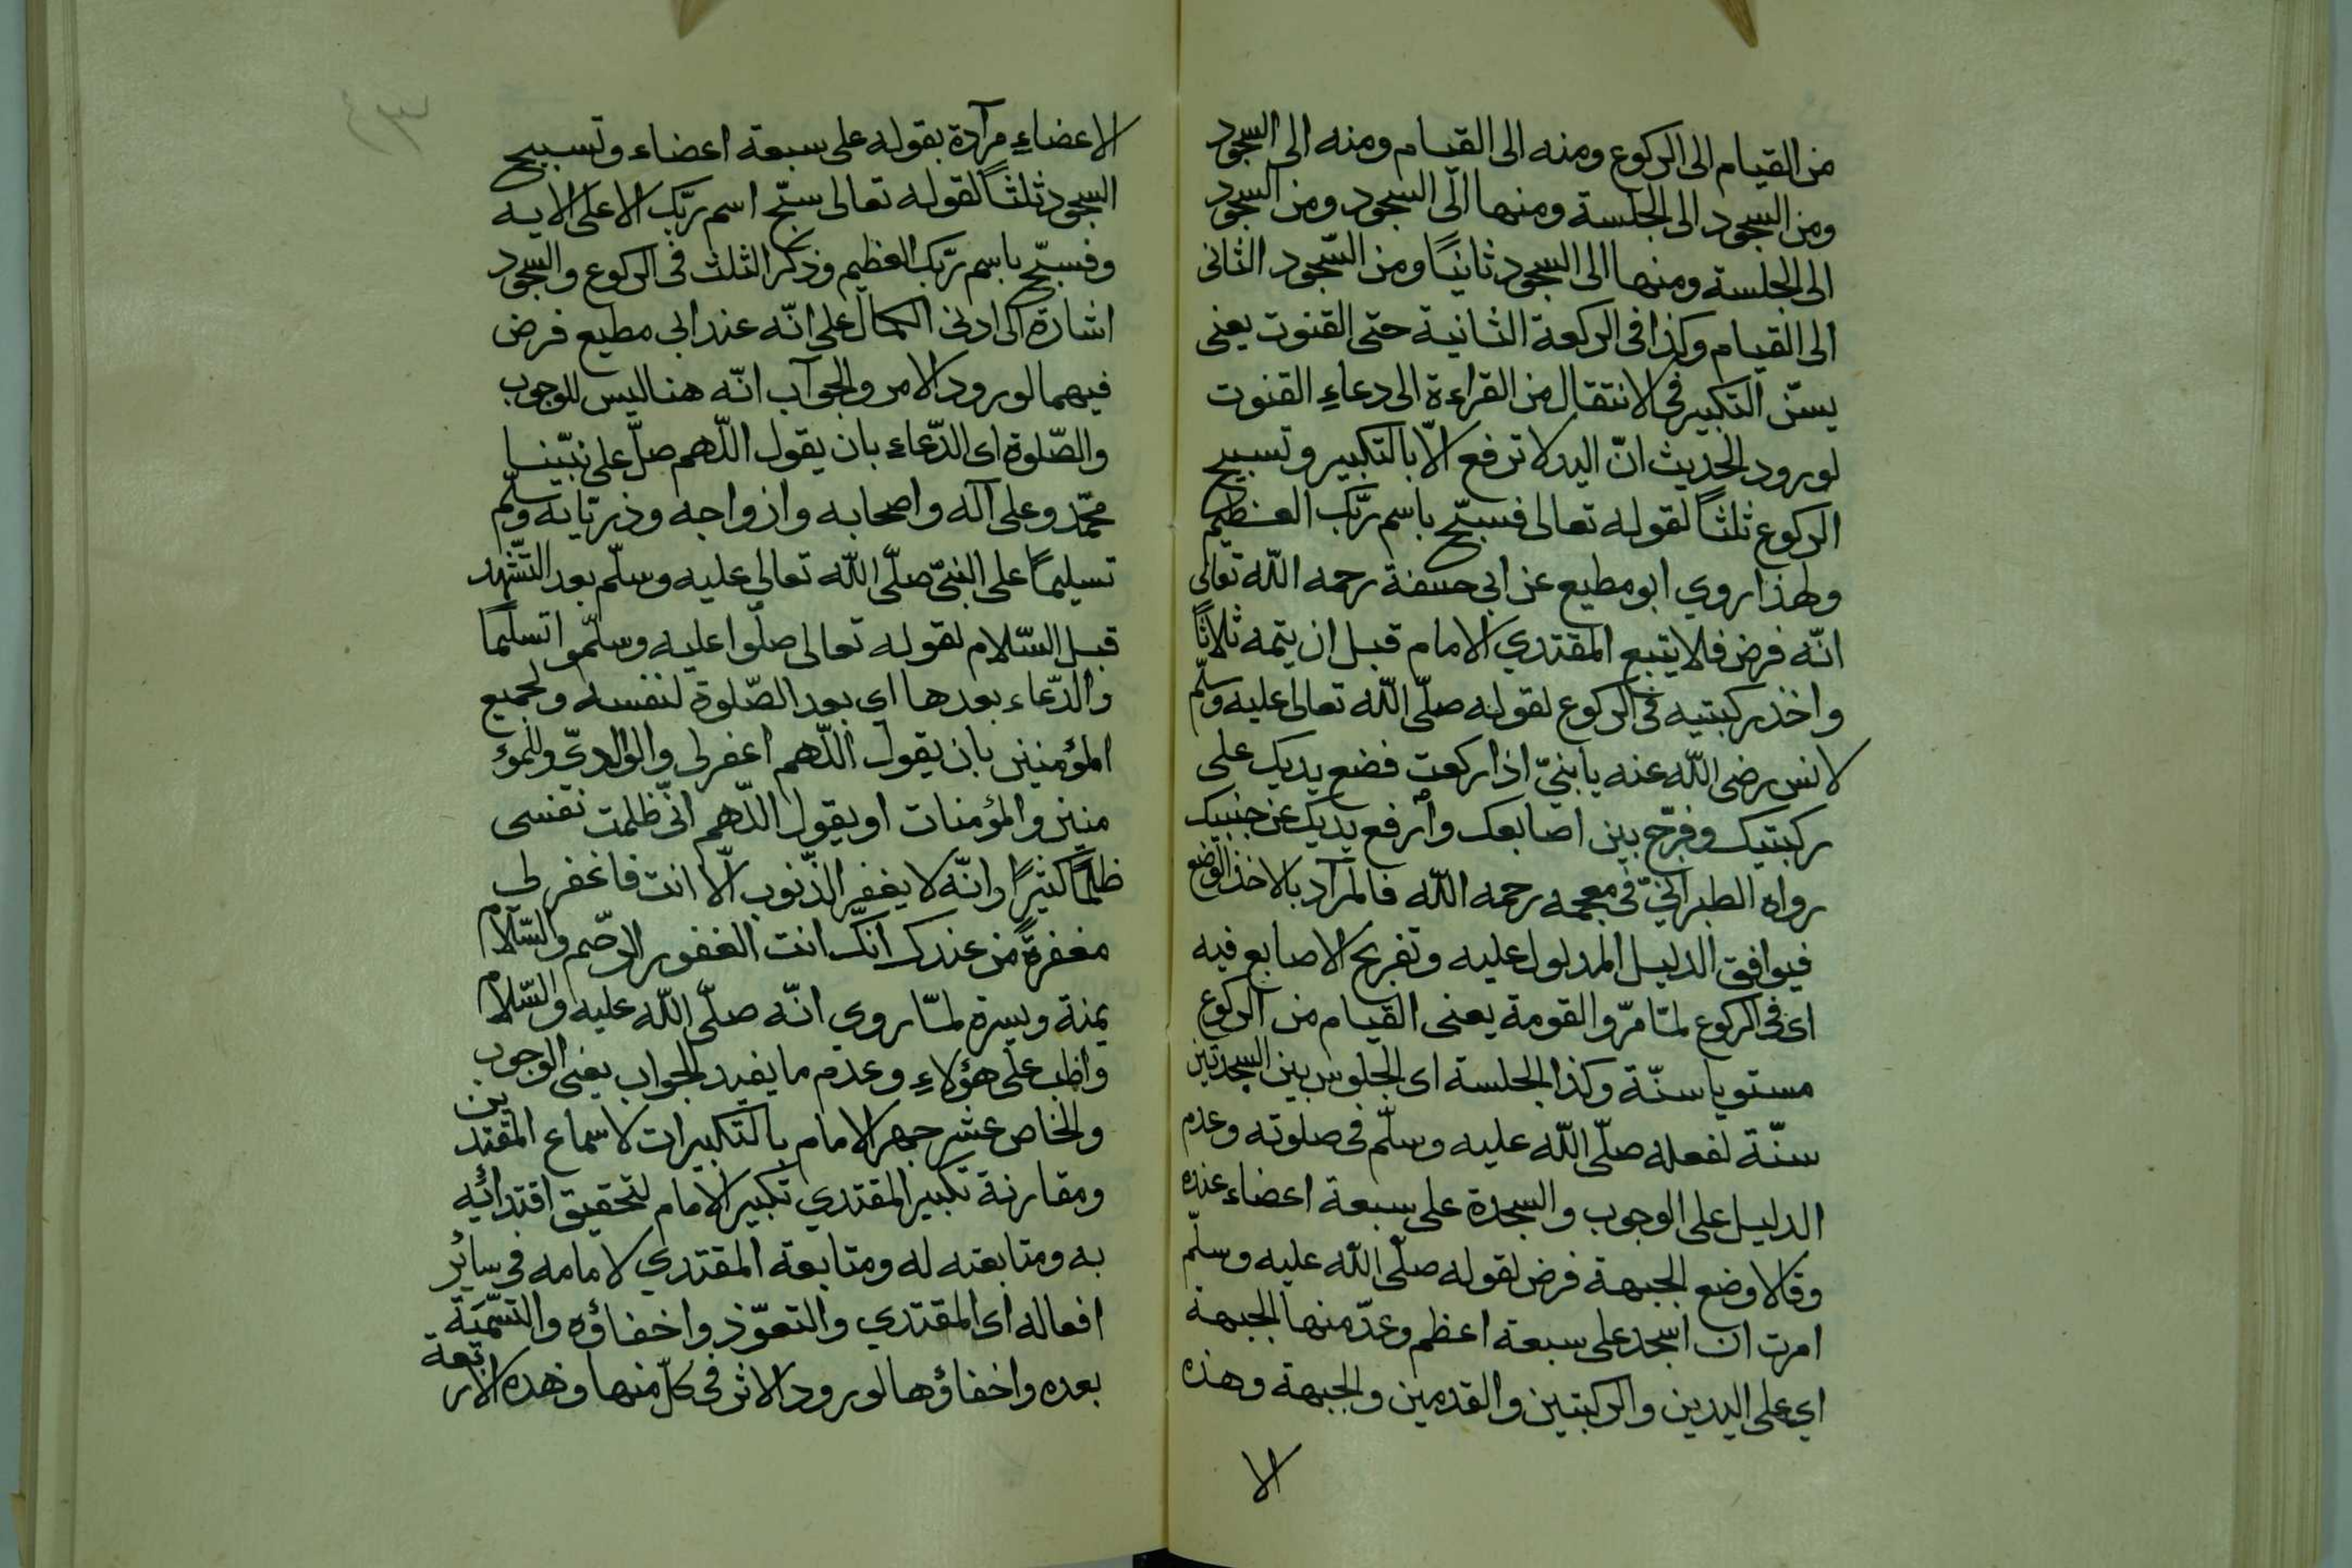 من القيام الى الركوع ومنه الى القيام ومنه الى السجود
ومن السجود الى الجلسة ومنها الى السجود ومن السجود
الى الجلسة ومنها الى السجود ثانيًا ومن السّجود الثانى
الى القيام وكذا فى الركعة الثانية حتى القنوت يعنى
يسنّ التكبير فى الانتقال من القراءة الى دعاءِ القنوت
لورود الحديث انّ اليد لا ترفع الّا بالتكبير وتسبيح
الركوع ثلثاً لقوله تعالى فسبّح باسم ربّك العظيم
ولهذا روي ابو مطيع عن ابى حنيفة رحمه اللّه تعالى
انّه فرض فلا يتبع المقتدي الامام قبل ان يتمه ثلاثاً
واخذ ركبتيه فى الركوع لقوله صلّى اللّه تعالى عليه وسلّم
لانس رضى اللّه عنه يا بنيّ اذا ركعت فضع يديك على
ركبتيك وفرّج بين اصابعك وارفع يديك عن جنبيك
رواه الطبرانيّ فى معجمه رحمه اللّه فالمراد بالاخذ الوضع
فيوافق الدليل المدلول عليه وتفريج الاصابع فيه
اى فى الركوع لمّا مرّ والقومة يعنى القيام من الركوع
مستويا سنّة وكذا الجلسة اى الجلوس بين السجدتين
سنّة لفعله صلّى اللّه عليه وسلّم فى صلوته وعدم
الدليل على الوجوب والسجدة على سبعة اعضاء عنده
وقالا وضع الجبهة فرض لقوله صلّى اللّه عليه وسلّم
امرت ان اسجد على سبعة اعظم وعدّ منها الجبهة
اي على اليدين والركبتين والقدمين والجبهة وهذه
الا
الاعضاءِ مرآدة بقوله على سبعة اعضاء وتسبيح
السجود ثلثاً لقوله تعالى سبّح اسم ربّك الاعلى الايه
وفسبّح باسم ربّك العظيم وذكر الثلث فى الركوع والسجود
اشارة الى ادنى الكمال على انّه عند ابى مطيع فرض
فيهما لورود الامر والجوآب انّه هنا ليس للوجوب
والصّلوة اى الدّعاء بان يقول اللّهم صلّ على نبيّنا
محمّد وعلى آله واصحابه وازواجه وذرياته وسلّم
تسليمًا على النبىّ صلّى اللّه تعالى عليه وسلّم بعد التّشهد
قبل السّلام لقوله تعالى صلّوا عليه وسلّموا تسليمًا
والدّعاء بعدها اي بعد الصّلوة لنفسه ولجميع
المؤمنين بان يقول اللّهم اغفر لى والوالديّ وللمؤ
منين والمؤمنات او يقول اللّهم انّى ظلمت نفسى
ظلمًا كثيرًا وانّه لا يغفر الذّنوب الّا انت فاغفر لي
مغفرةً من عندك انّك انت الغفور الرحيم والسّلام
يمنة ويسرة لمّا روي انّه صلّى اللّه عليه والسّلام
واظب على هؤلاءِ وعدم ما يفيد الجواب يعنى الوجوب
والخامس عشر جهر الامام بالتكبيرات لاسماع المقتدين
ومقارنة تكبير المقتدي تكبير الامام لتحقيق اقتدائه
به ومتابعته له ومتابعة المقتدي لامامه فى سائر
افعاله اى المقتدي والتعوّذ واخفاؤه والتّسميَة
بعده واخفاؤها لورود الاثر فى كلّ منها وهذه الاربعة